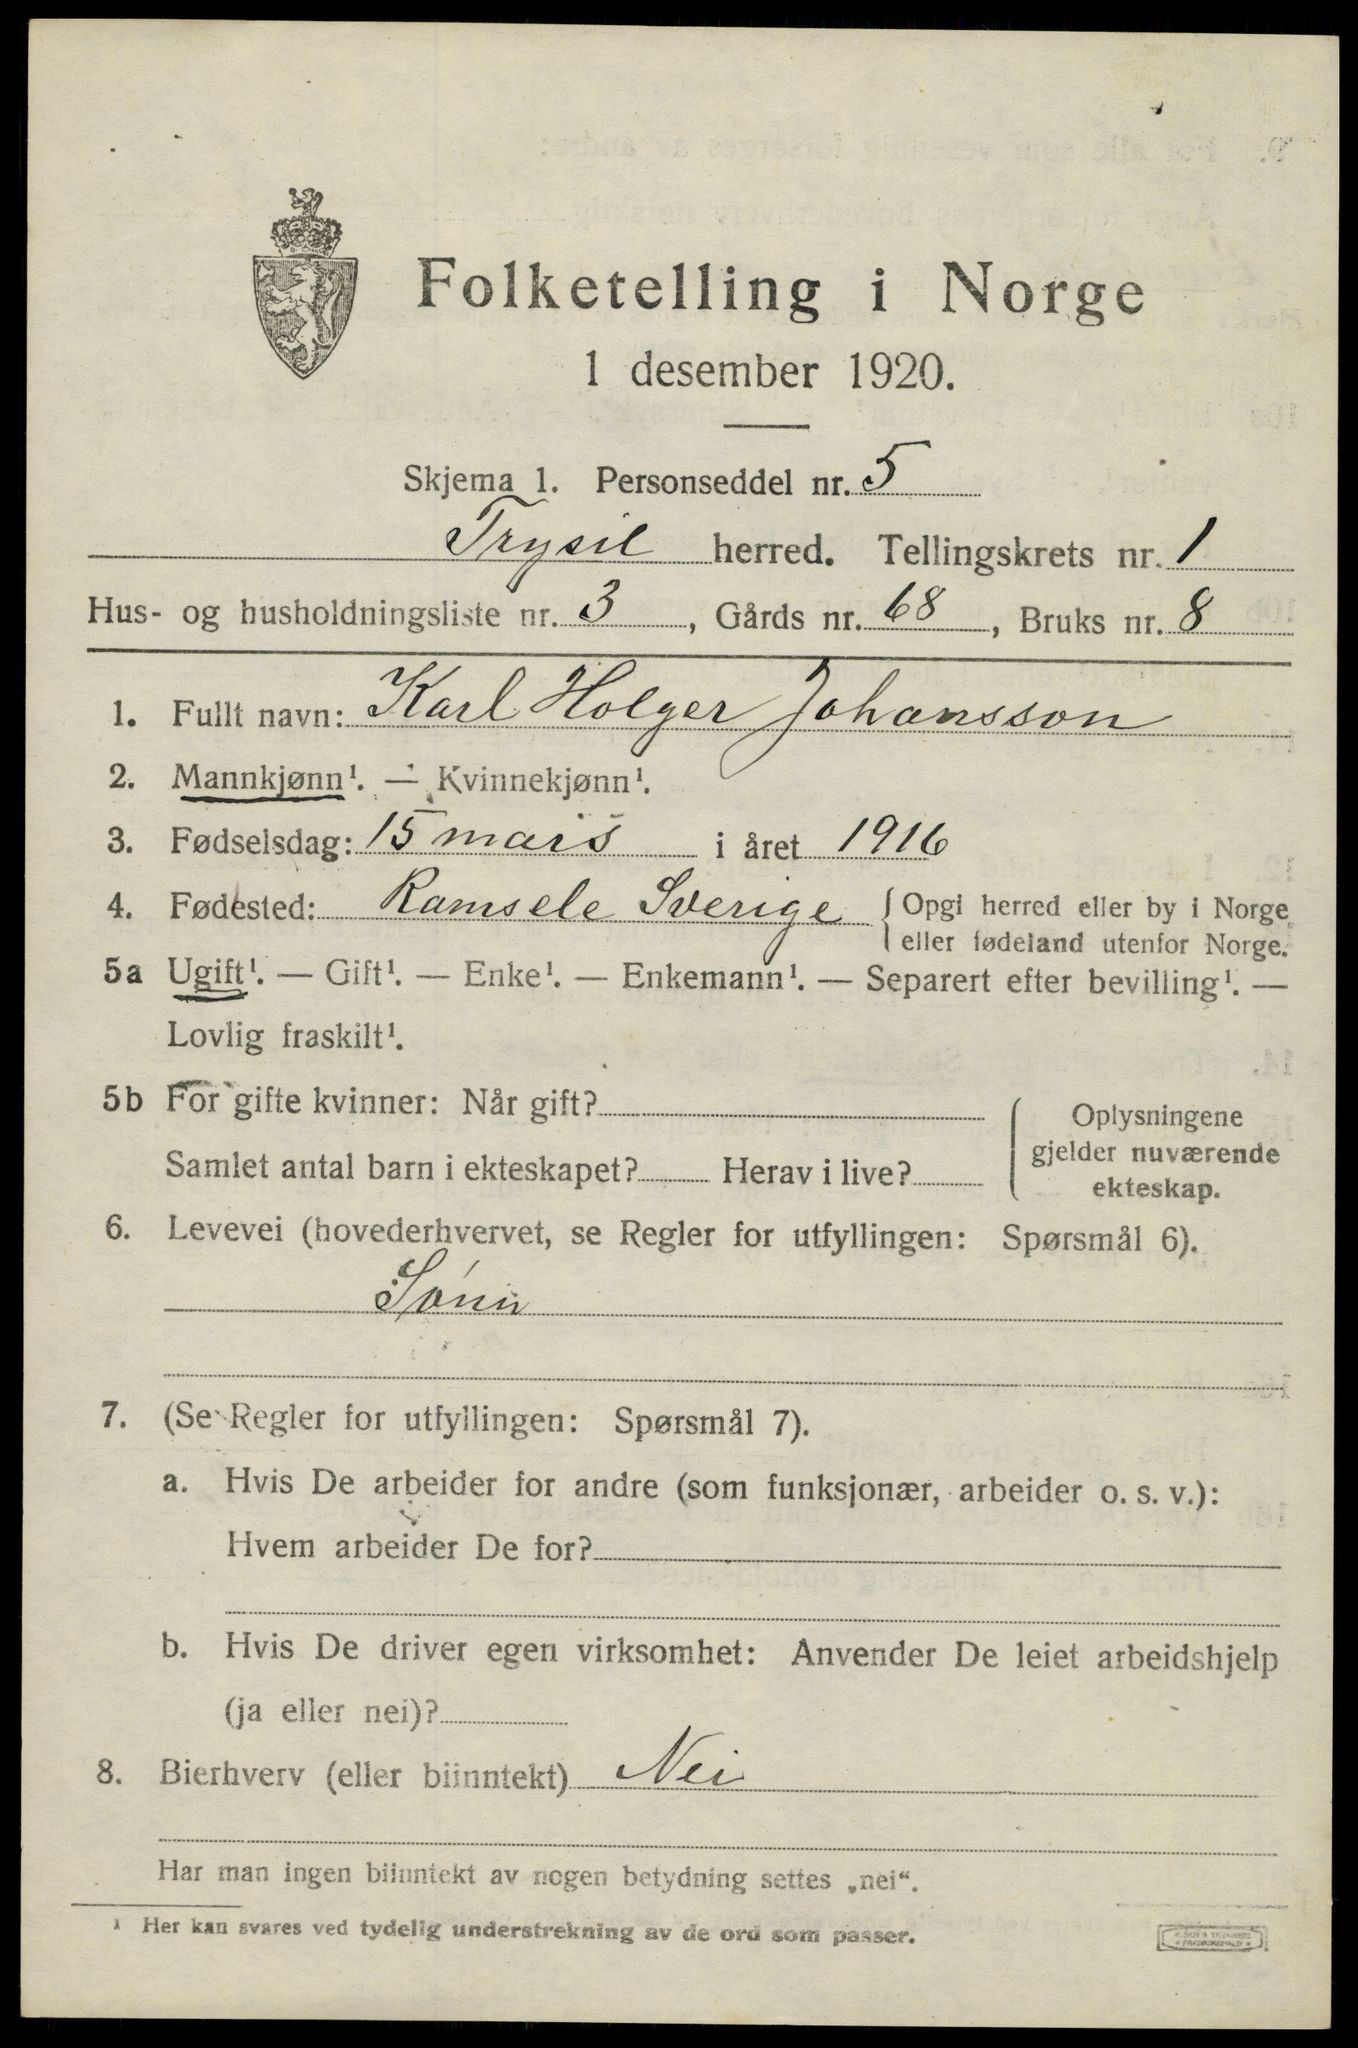 Folketelling i Norge
1 desember 1920.
Skjema 1. Personseddel nr. 5
Trysil herred. Tellingskrets nr. 1
Hus- og husholdningsliste nr. 3, Gårds nr. 68, Bruks nr. 8
1. Fullt navn: Karl Holger Johansson
2. Mannkjønn¹. — Kvinnekjønn¹.
3. Fødselsdag: 15 mars i året 1916
4. Fødested: Ramsele Sverige { Opgi herred eller by i Norge
eller fødeland utenfor Norge.
5a Ugift¹. — Gift¹. — Enke¹. — Enkemann¹. — Separert efter bevilling¹. —
Lovlig fraskilt¹.
5b For gifte kvinner: Når gift?
Samlet antal barn i ekteskapet? Herav i live?
Oplysningene
gjelder nuværende
ekteskap.
6. Levevei (hovederhvervet, se Regler for utfyllingen: Spørsmål 6).
Sønn
7. (Se Regler for utfyllingen: Spørsmål 7).
a. Hvis De arbeider for andre (som funksjonær, arbeider o. s. v.):
Hvem arbeider De for?
b. Hvis De driver egen virksomhet: Anvender De leiet arbeidshjelp
(ja eller nei)?
8. Bierhverv (eller biinntekt) Nei
Har man ingen biinntekt av nogen betydning settes „nei“.
¹ Her kan svares ved tydelig understrekning av de ord som passer.